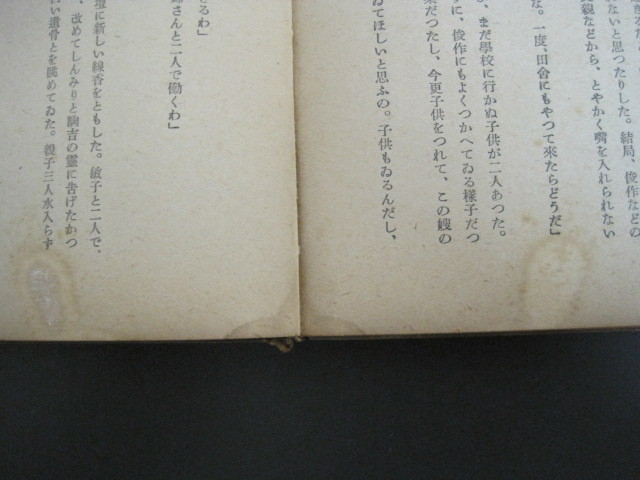 きな
れないと思つたりした。結局、俊作などの
貌などから、とやかく嘴を入れられない
な。一度、田舎にもやつて來たらどうだ」
、まだ學校に行かぬ子供が二人あつた。
に、俊作にもよくつかへてゐる樣子だつ
だつたし、今更子供をつれて、この嫂の
ゐてほしいと思ふの。子供もゐるんだし、
きるわ」
さんと二人で働くわ」
に新しい線香をともした。敏子と二人で、
、改めてしんみりと駒吉の靈に告げたかつ
い遺骨とを眺めてゐた。親子三人水入らず